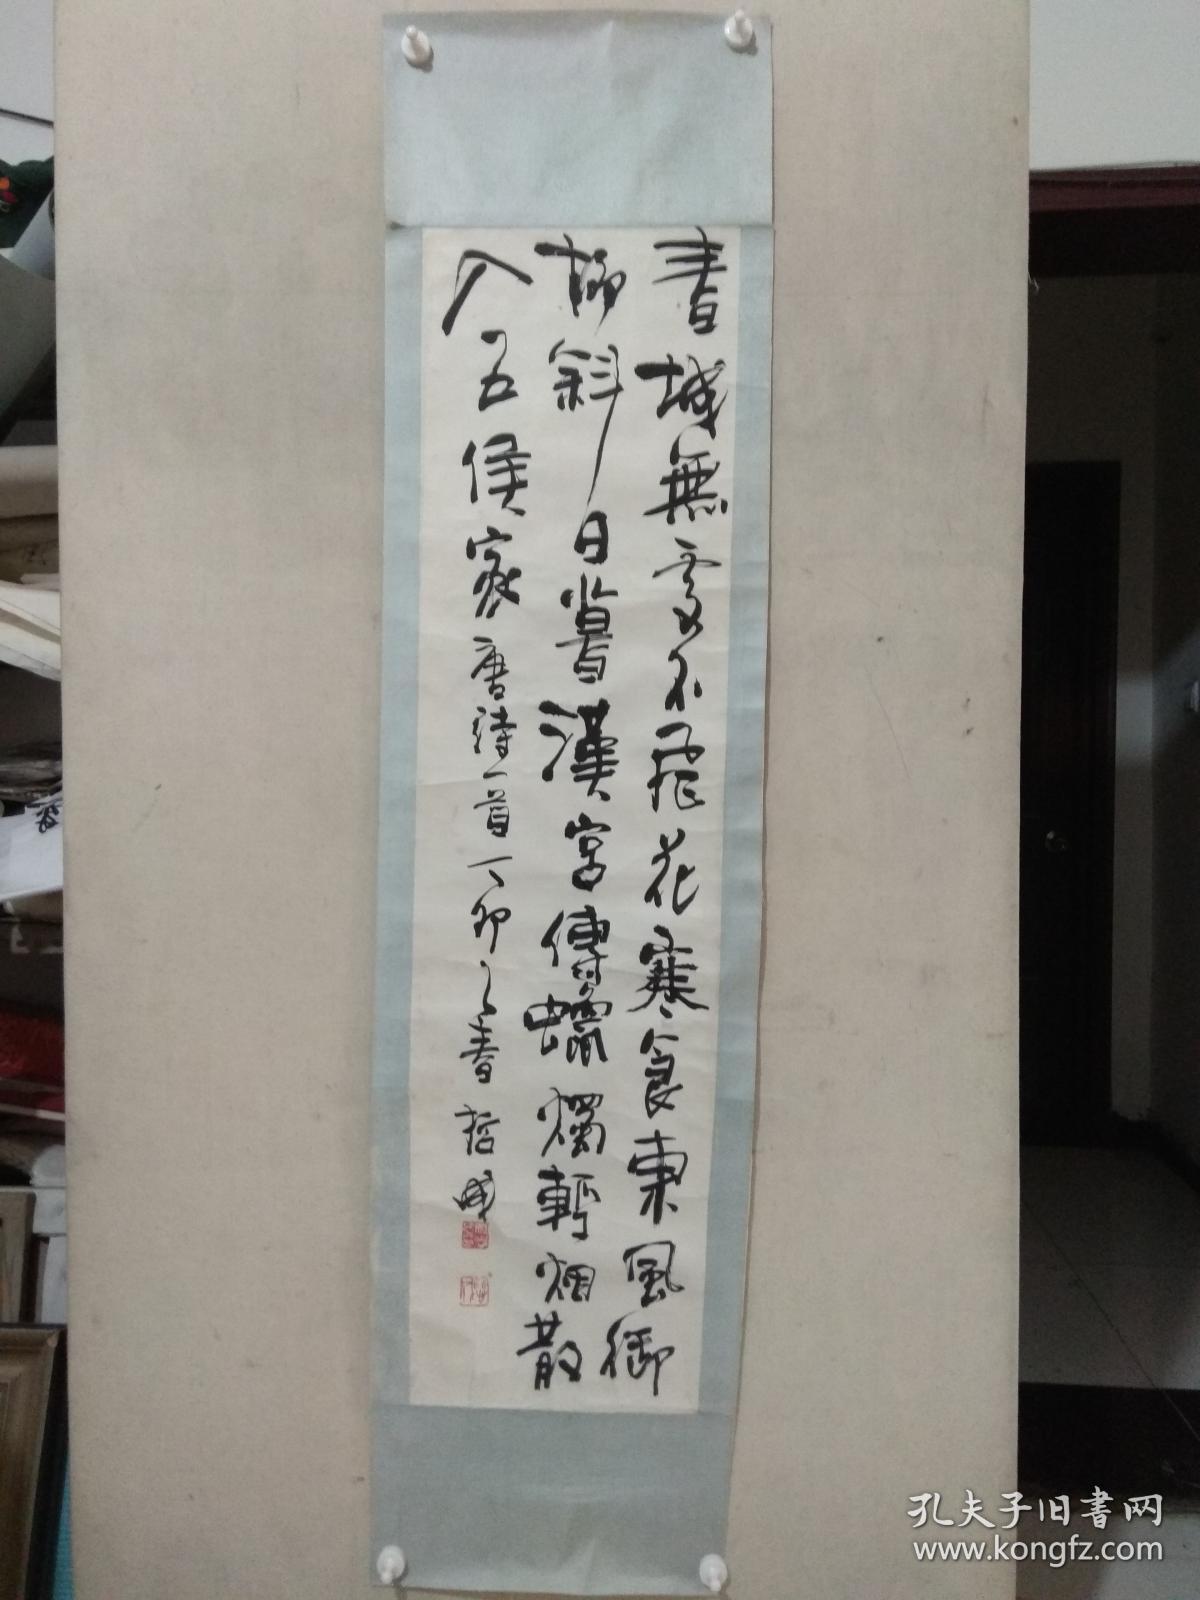 春城無處不飛花寒食東風御
柳斜日暮漢宮傳蠟燭輕烟散
入五侯家唐詩一首丁卯之春哲
孔夫子旧书网
www.kongfz.com